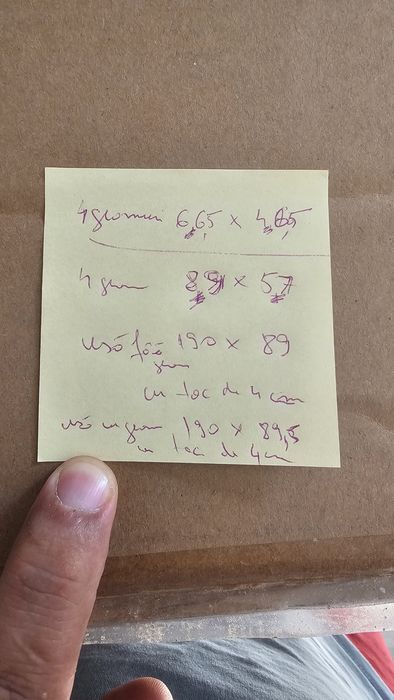 4 geamuri 665 x 465
4 geam 89 x 57
usă fără 190 x 89
geam
cu toc de 4 cm
usă cu geam 190 x 89,5
cu toc de 4 cm